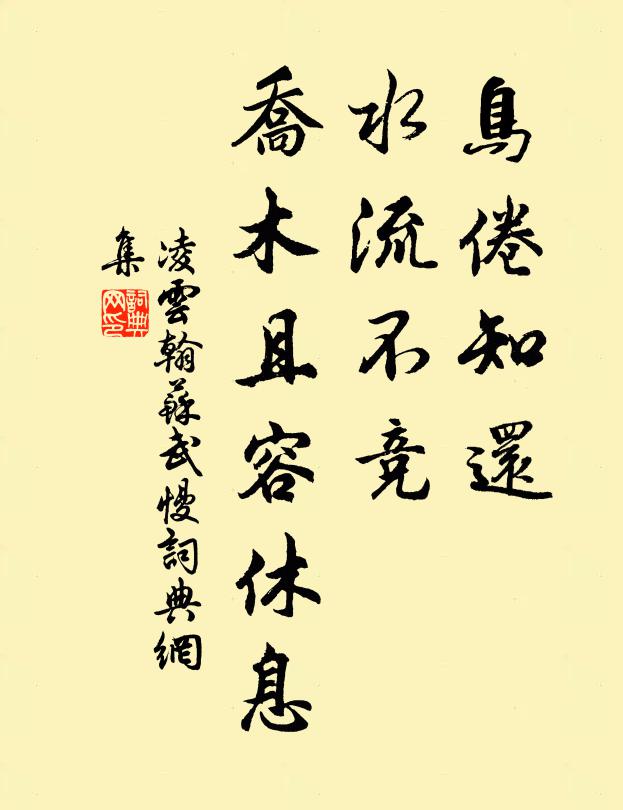 鳥倦知還
水流不竞
喬木且容休息
凌雲翰蘇武慢詞典網
集
詞典
网印